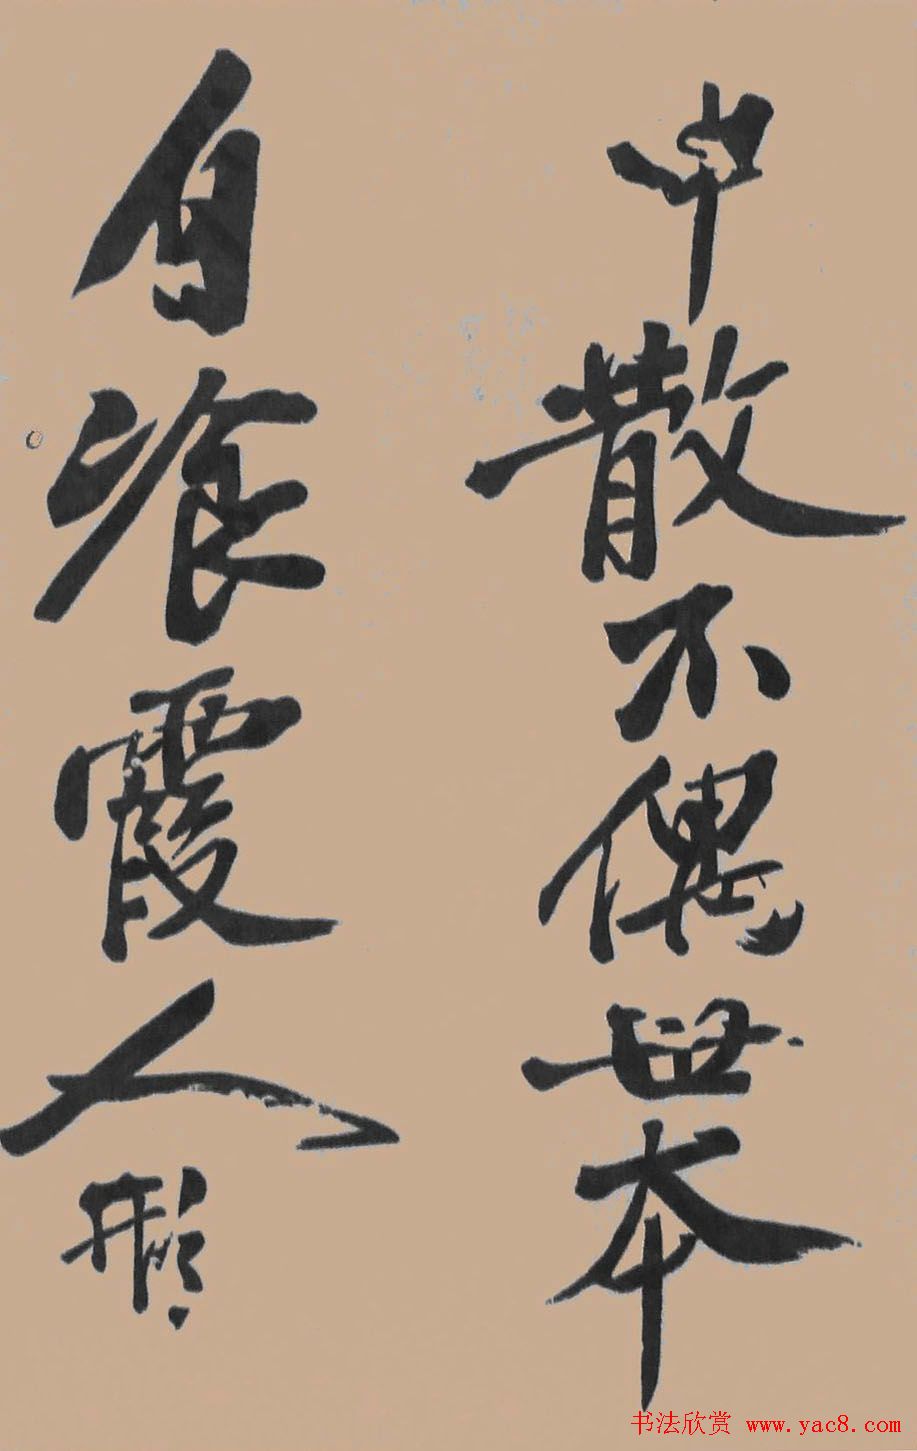 中散不偶世本
自飡霞人形
书法欣赏 www.yac8.com